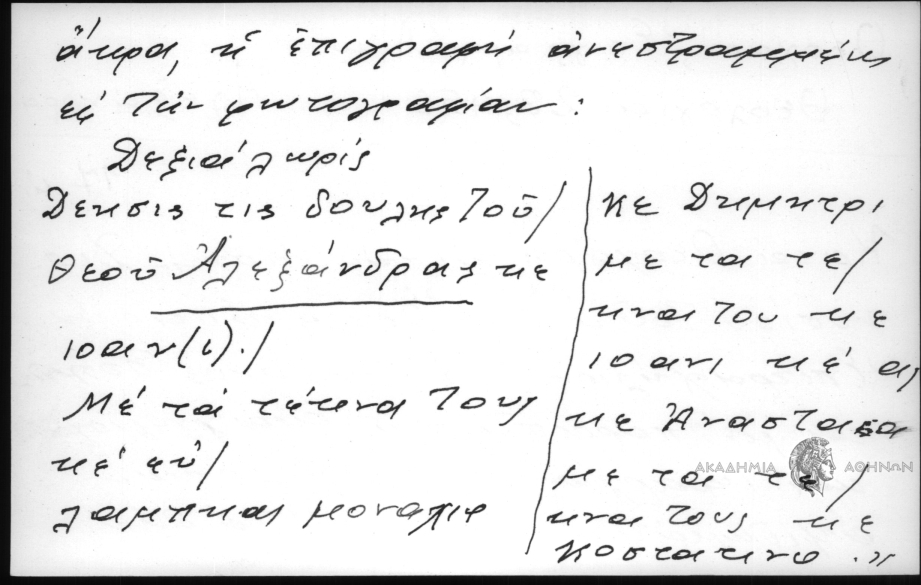 ἄκρα, ἡ ἐπιγραφὴ ἀνεστραμμένη
εἰς τὴν φωτογραφίαν :
Δεξιά χωρίς
Δεησις τις δουλης τοῦ/
Θεοῦ Ἀλεξάνδρας κε
ιοαν(ι)./
Μέ τά τέκνα τους
κέ εὐ/
λαμπκαι μοναχιι
κε Δημητρι
με τα τε/
κνα του κε
ιοανι κέ ας
κε Ἀναστασα
με τα τε/
κνα τους κε
Κοστατινο .»
ΑΚΑΔΗΜΙΑ ΑΘΗΝΩΝ